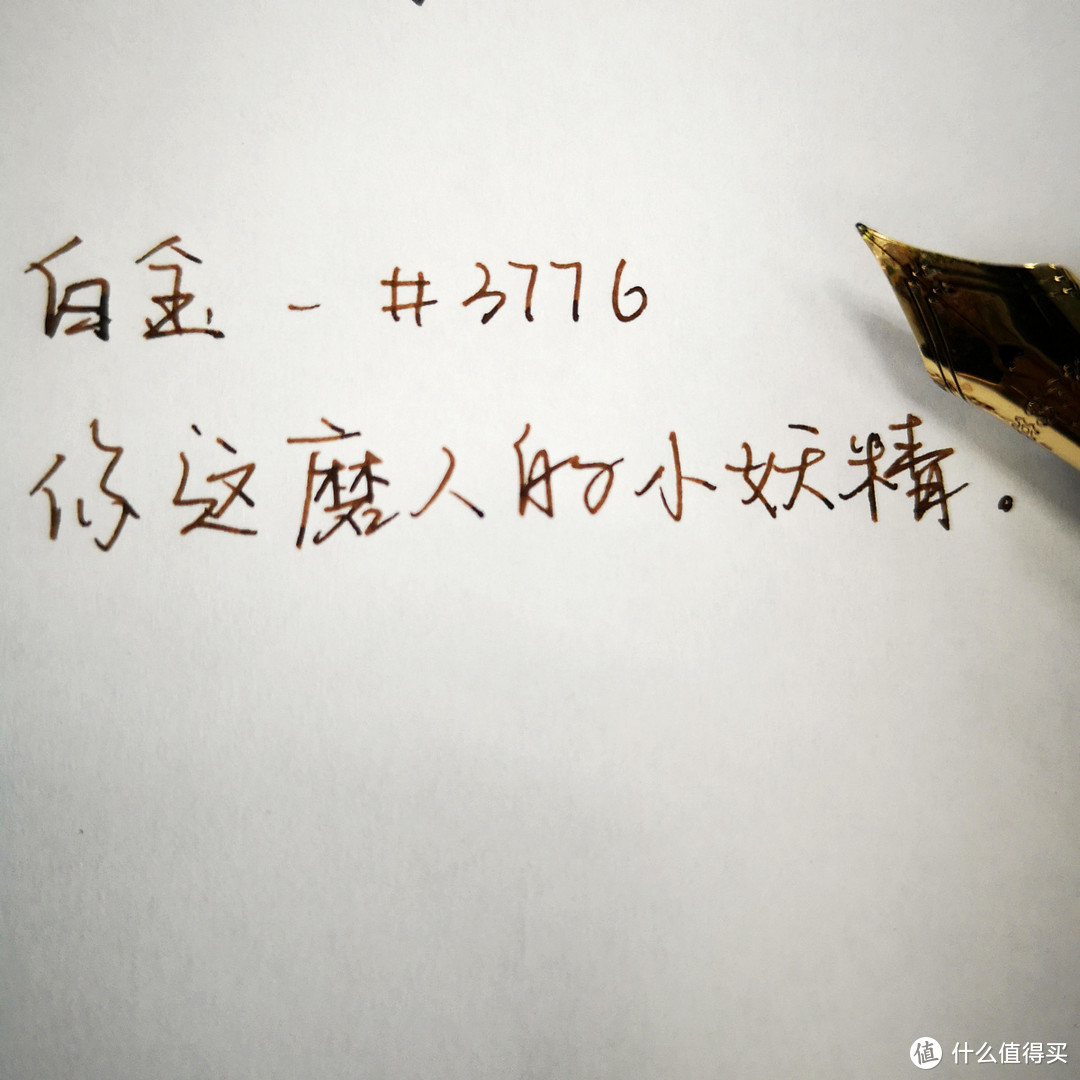 白金 - #3776
你这磨人的小妖精.
值 什么值得买